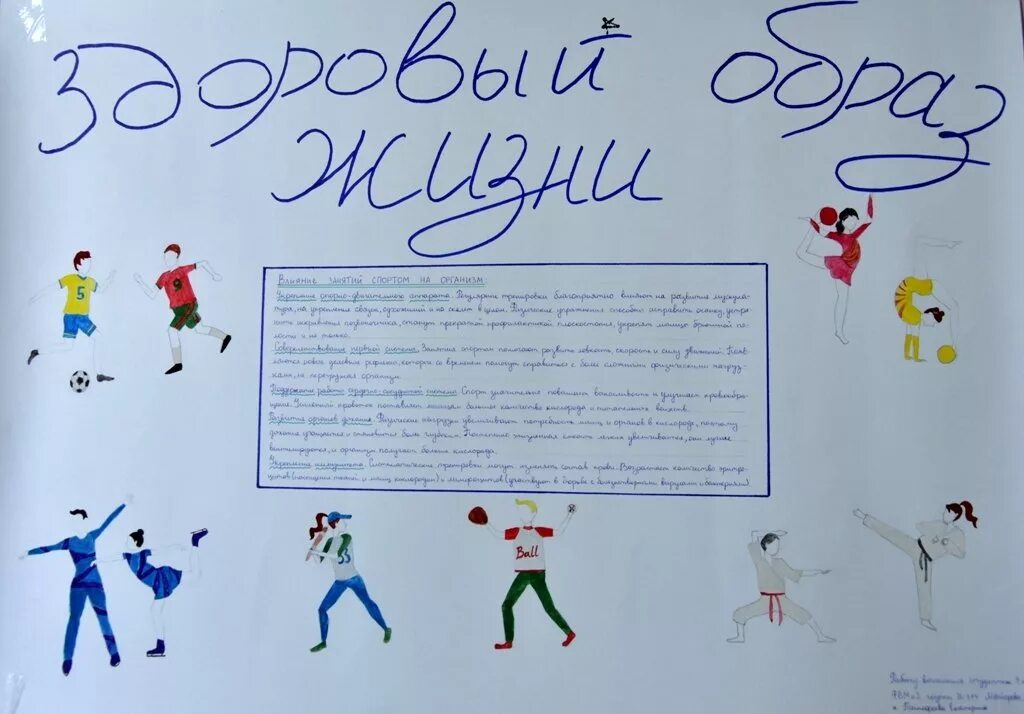 здоровый образ
жизни
Влияние занятий спортом на организм:
Укрепление опорно-двигательного аппарата. Регулярные тренировки благоприятно влияют на развитие мускула-
туры, на укрепление связок, сухожилий и на скелет в целом. Физические упражнения способны исправить осанку, устра-
нить искривления позвоночника, станут прекрасной профилактикой плоскостопия, укрепят мышцы брюшной по-
лости и не только.
Совершенствование нервной системы. Занятия спортом помогают развить ловкость, скорость и силу движений. Появ-
ляются новые условные рефлексы, которые со временем помогут справиться с более сложными физическими нагруз-
ками, не перегружая организм.
Поддержание работы сердечно-сосудистой системы. Спорт значительно повышает выносливость и улучшает кровообра-
щение. Усиленный кровоток поставляет мышцам большее количество кислорода и питательных веществ.
Развитие органов дыхания. Физические нагрузки увеличивают потребность мышц и органов в кислороде, поэтому
дыхание учащается и становится более глубоким. Постепенно жизненная емкость легких увеличивается, они лучше
вентилируются, и организм получает больше кислорода.
Укрепление иммунитета. Систематические тренировки могут изменять состав крови. Возрастает количество эритро-
цитов (насыщение ткани и мышц кислородом) и лимфоцитов (участвуют в борьбе с болезнетворными вирусами и бактериями)
5
9
33
Ball
Работу выполнила студентка
группы
Екатерина